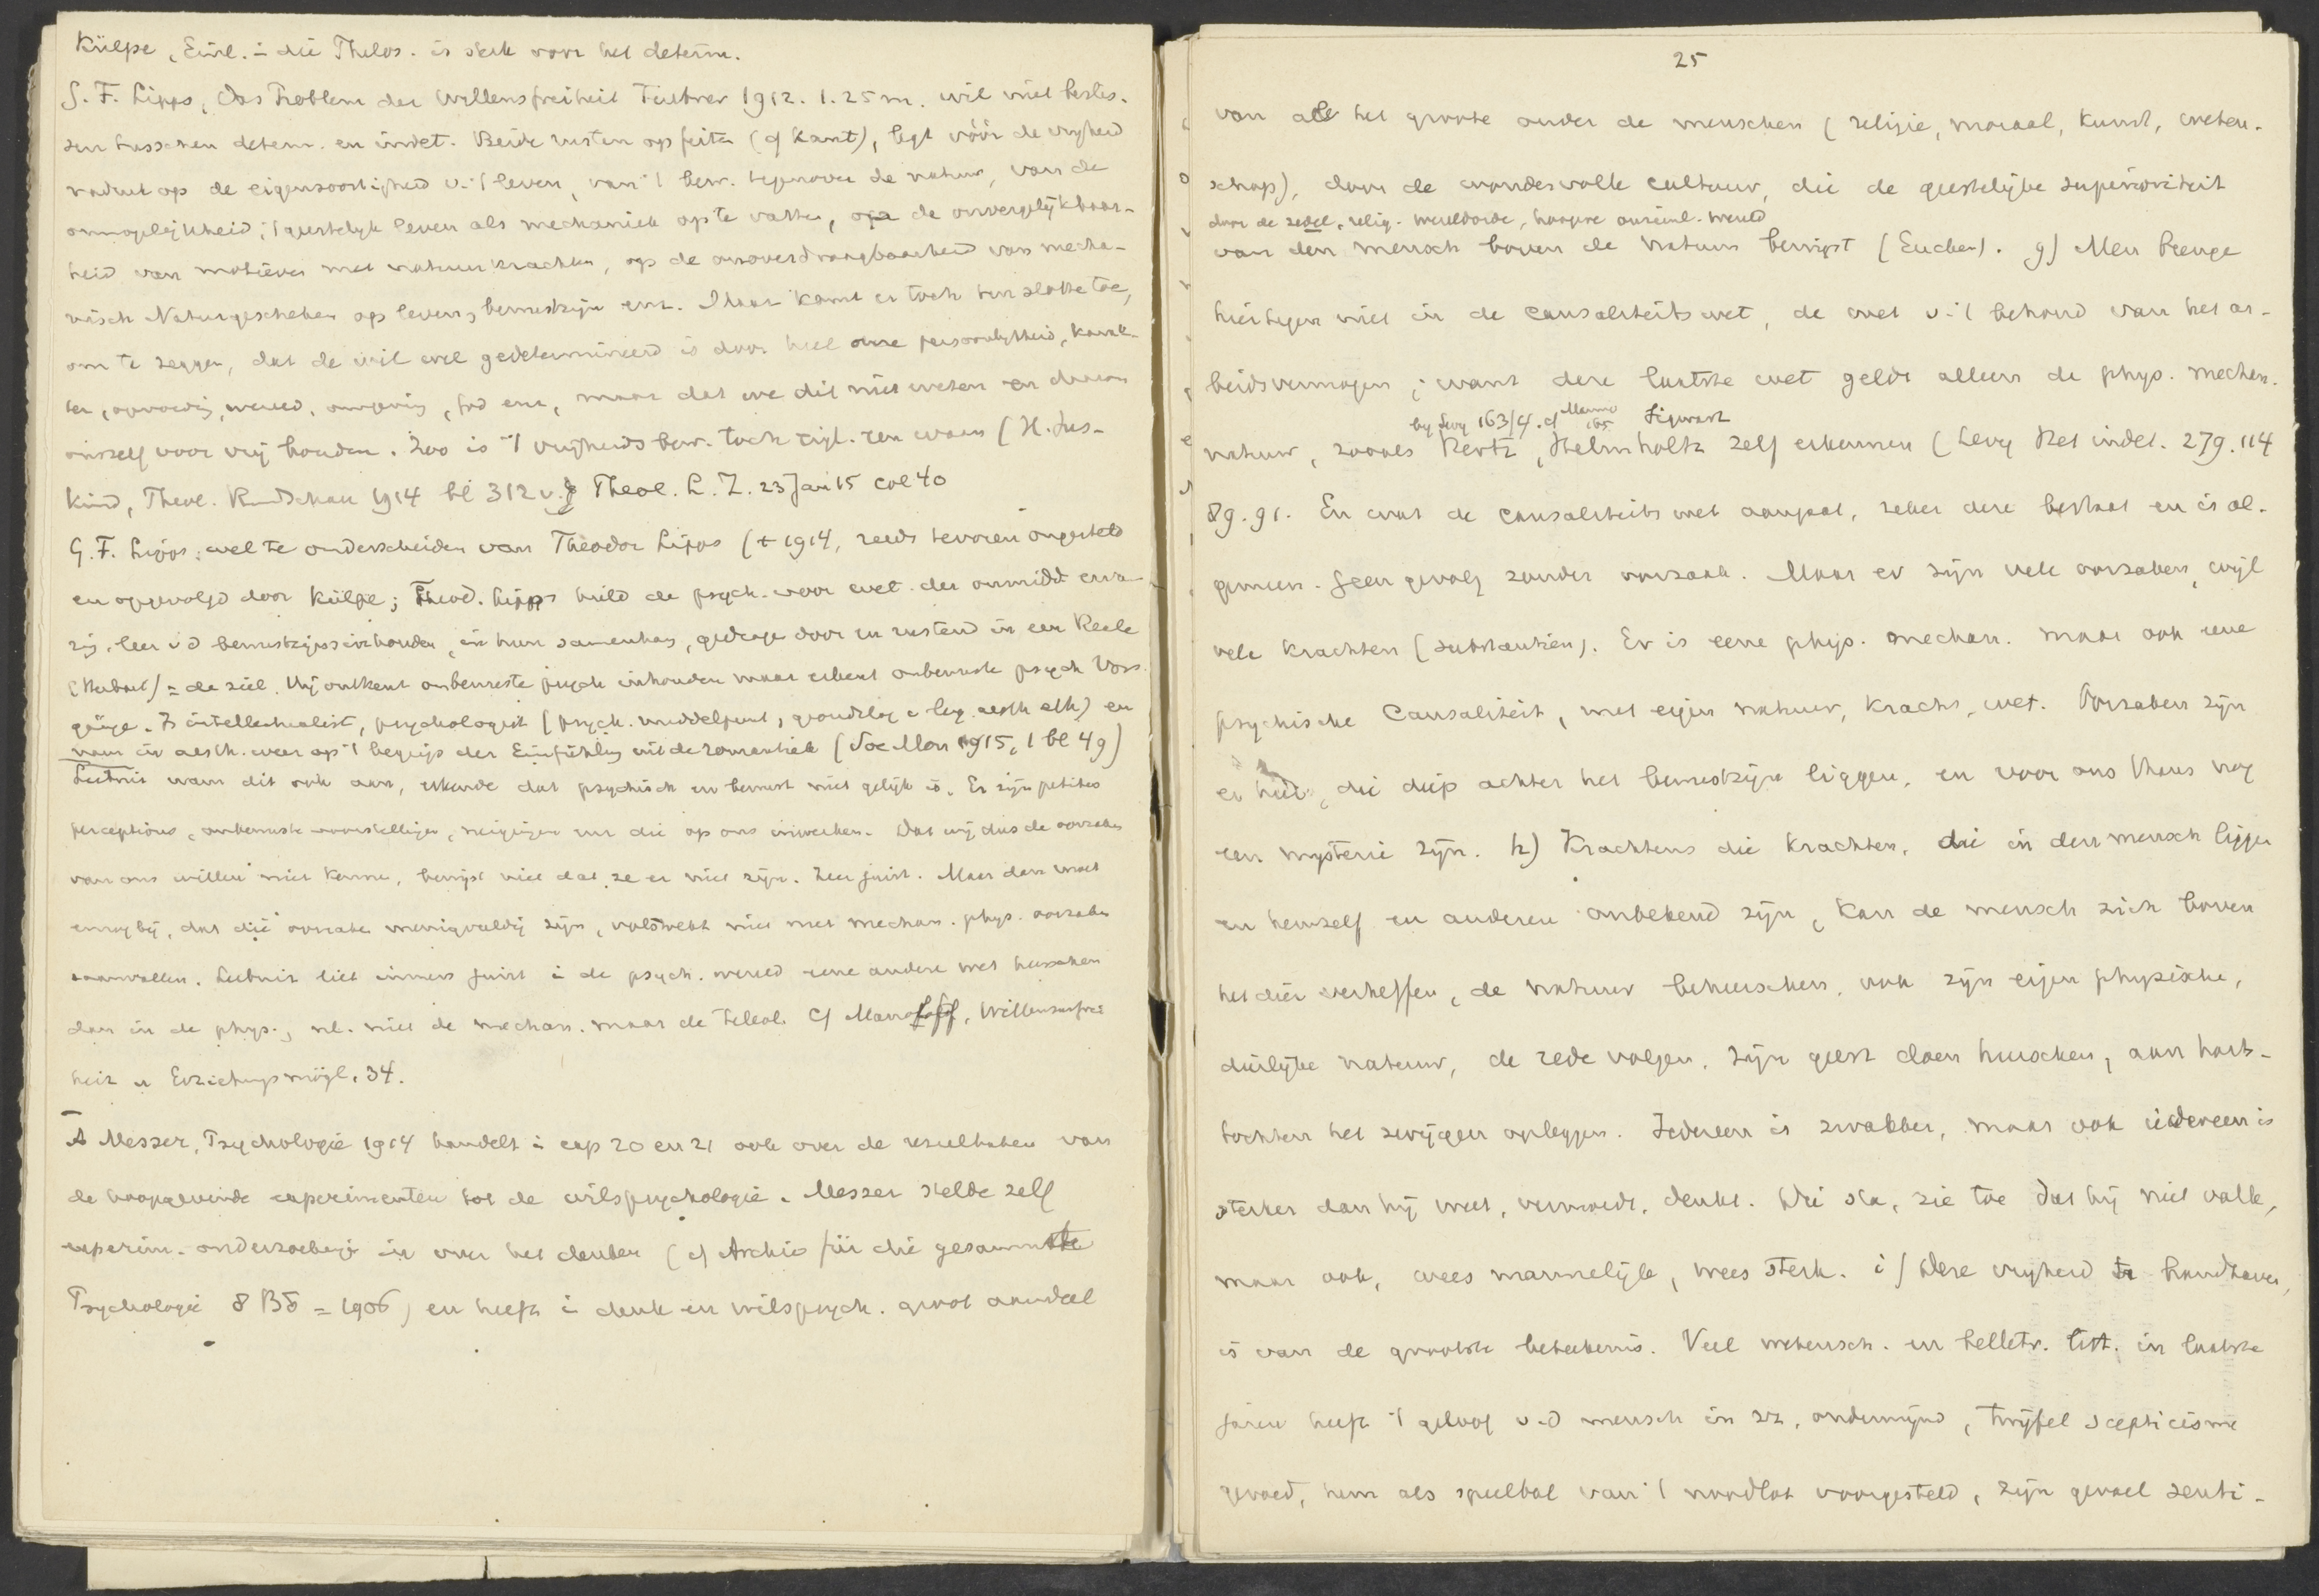 Külpe, Einl. i die Philos. is sterk voor het determ.
G. F. Lipps, Das Problem der Willensfreiheit Teubner 1912. 1.25 m. wil niet beslis-
sen tusschen determ. en indet. Beide rusten op feiten (cf Kant), legt vóór de vrijheid
nadruk op de eigensoortigheid v. 't leven, van 't bew. tegenover de natuur, van de
onmogelijkheid, 't geestelijk leven als mechaniek op te vatten, op de onvergelijkbaar-
heid van motieven met natuurkrachten, op de onoverdraagbaarheid van mecha-
nisch Naturgeschehen op leven, bewustzijn enz. Maar komt er toch ten slotte toe,
om te zeggen, dat de wil wel gedetermineerd is door heel onze persoonlijkheid, karak-
ter, opvoeding, wereld, omgeving, God enz, maar dat we dit niet weten en daarom
onszelf voor vrij houden. Zoo is 't vrijheids bew. toch eigl. een waan (H. Jus-
kind, Theol. Rundschau 1914 bl 312 v. Theol. L. Z. 23 Jan 15 col 40
G. F. Lipps, wel te onderscheiden van Theodor Lipps († 1914, reeds tevoren ongesteld
en opgevolgd door Külpe; Theod. Lipps hield de psych. voor wet. der onmidd. erva-
ring, leer v d bewustzijnsinhouden, in hun samenhang, gedrage door en rustend in een Reele
(Herbart) = de ziel. Hij ontkent onbewuste psych inhouden maar erkent onbewuste psych Vor-
gänge. Is intellectualist, psychologist (psych. middelpunt, grondslag v. log. aesth eth) en
nam in aesth. weer op 't begrip der Einfühlung uit de romantiek (Soc Mon 1915, 1 bl 49)
Leibniz nam dit ook aan, erkende dat psychisch en bewust niet gelijk is. Er zijn petites
perceptions, onbewuste voorstellingen, neigingen enz die op ons inwerken. Dat wij dus de oorzaken
van ons willen niet kennen, bewijst niet dat ze er niet zijn. Zeer juist. Maar dan moet
erbij, dat die oorzaken menigvuldig zijn, volstrekt niet met mechan. phys. oorzaken
samenvallen. Leibniz liet immers juist i de psych. wereld eene andere wet heerschen
dan in de phys., nl. niet de mechan. maar de teleol. Cf Mannoff, Willensunfrei
heit u Erziehungsmögl. 34.
A Messer, Psychologie 1914 handelt i cap 20 en 21 ook over de resultaten van
de hoopgevende experimenten tot de wilspsychologie. Messer stelde zelf
experim. onderzoekingen in over het denken (cf Archiv für die gesammte
Psychologie 8 Bd = 1906) en heeft i denk en wilspsych. groot aandeel
25
van al het groote onder de menschen (religie, moraal, kunst, weten-
schap), door de wondervolle cultuur, die de geestelijke superioriteit
door de zedel. relig. wereldorde, hoogere onzienl. wereld
van den mensch boven de natuur bewijst (Eucken). g) Men brenge
hiertegen niet in de causaliteitswet, de wet v. 't behoud van het ar-
beidsvermogen; want deze laatste wet geldt alleen de phys. mechan.
by Levy 163/4. cf Manno 165 Sigwart
natuur, zooals Hertz, Helmholtz zelf erkennen (Levy Het indet. 279. 114
89. 91. En wat de causaliteits wet aangaat, zeker deze bestaat en is al-
gemeen. Geen gevolg zonder oorzaak. Maar er zijn vele oorzaken, wijl
vele krachten (substantien). Er is eene phys. mechan. maar ook eene
psychische Causaliteit, met eigen natuur, kracht, wet. Oorzaken zijn
er hier, die diep achter het bewustzijn liggen, en voor ons thans nog
een mysterie zijn. h) Krachtens die krachten, die in den mensch liggen
en hemzelf en anderen onbekend zijn, kan de mensch zich boven
het dier verheffen, de natuur beheerschen, ook zijn eigen physische,
dierlijke natuur, de rede volgen, zijn geest doen heerschen, aan harts-
tochten het zwijgen opleggen. Iedereen is zwakker, maar ook iedereen is
sterker dan hij weet, vermoedt, denkt. Die sta, zie toe dat hij niet valle,
maar ook, wees mannelijk, wees sterk. i) Deze vrijheid te handhaven,
is van de grootste beteekenis. Veel wetensch. en belletr. litt. in laatste
jaren heeft 't geloof v. d mensch in zz. ondermijnd, twijfel scepticisme
gevoed, hem als speelbal van 't noodlot voorgesteld, zijn gevoel senti-